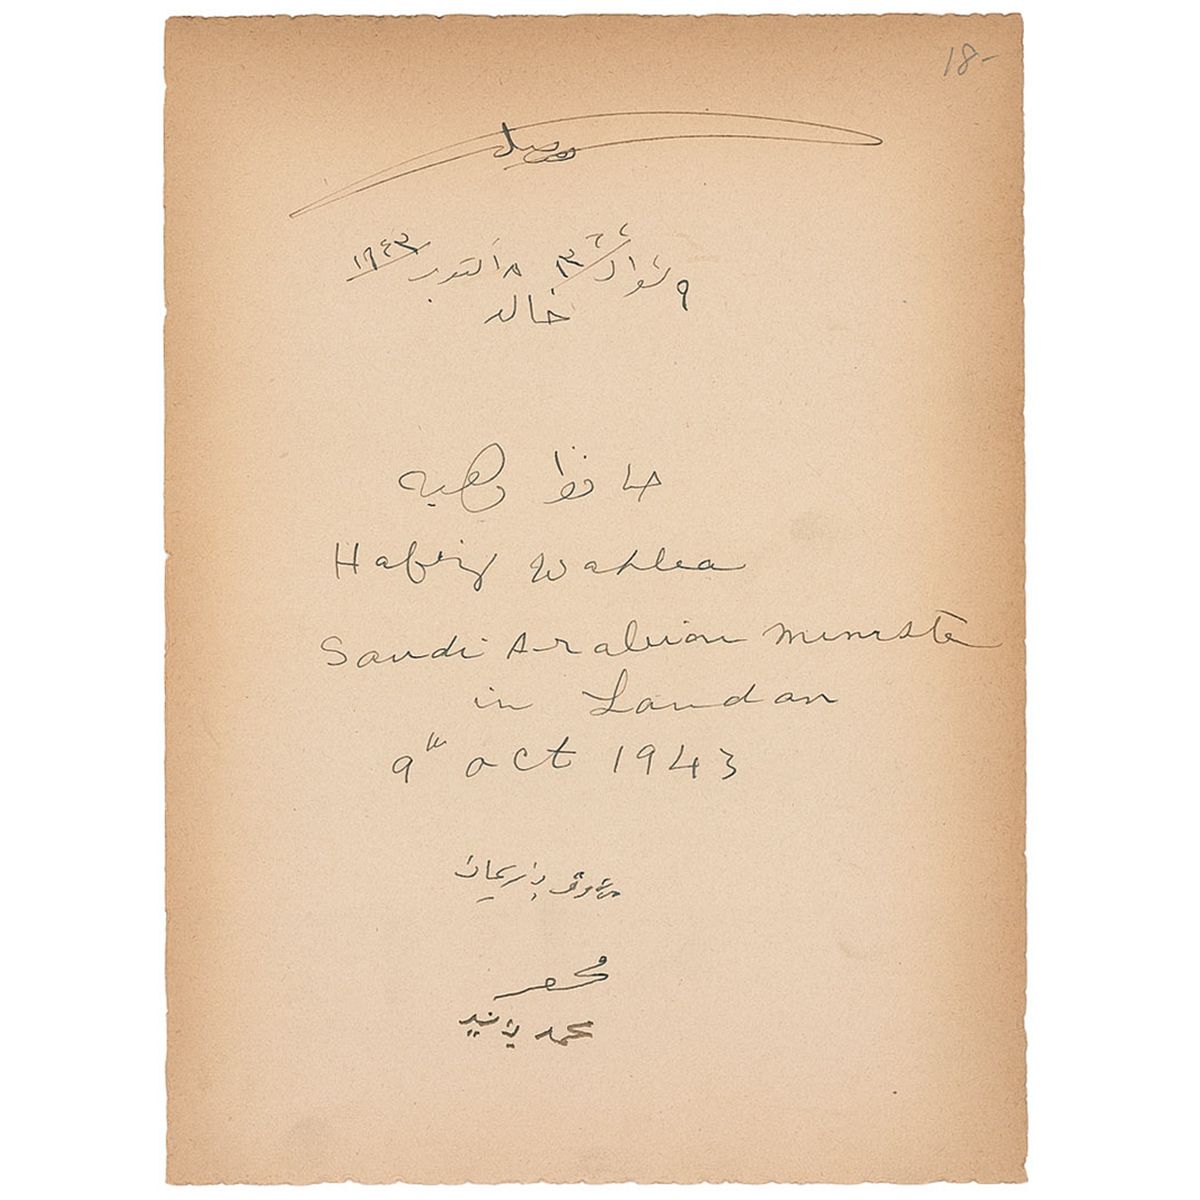 18-
فيصل
٩ شوال ١٣٦٢ ٨ اكتوبر ١٩٤٣
خالد
حافظ وهبه
Hafiz Wahba
Saudi Arabian Minister
in London
9th oct 1943
محمد